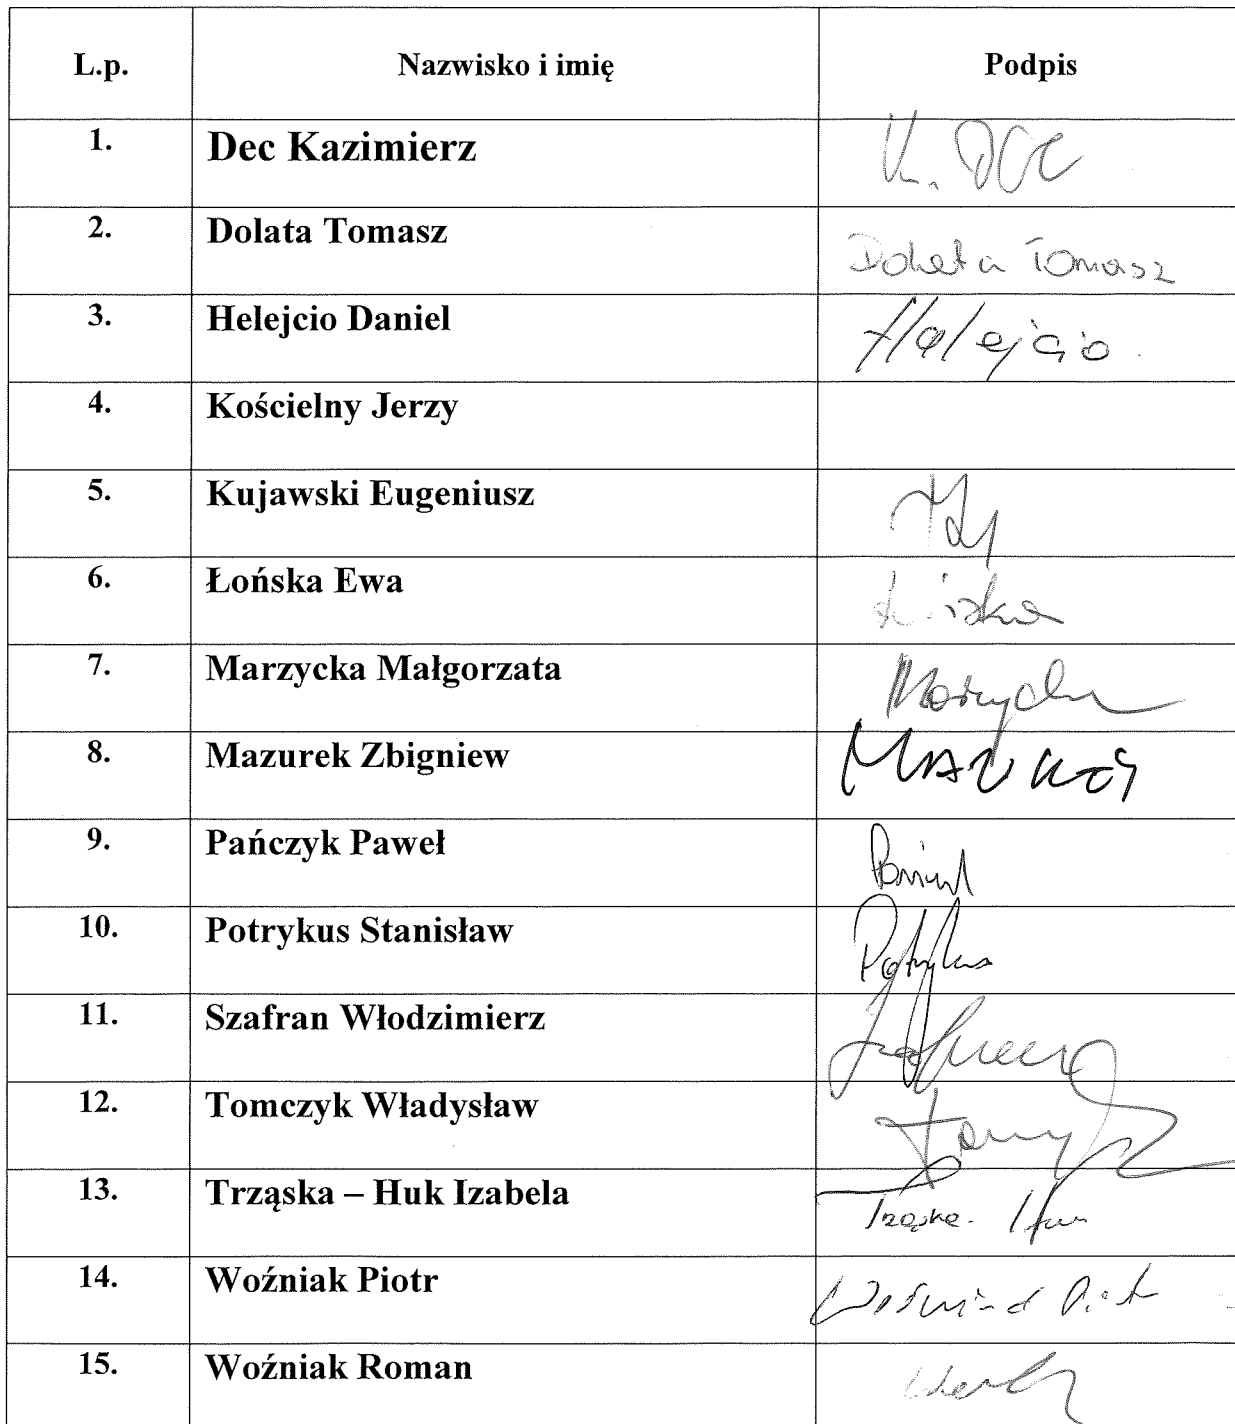 L.p. Nazwisko i imię Podpis
1. Dec Kazimierz K. Dec
2. Dolata Tomasz Dolata Tomasz
3. Helejcio Daniel Helejcio
4. Kościelny Jerzy
5. Kujawski Eugeniusz
6. Łońska Ewa
7. Marzycka Małgorzata Marzycka
8. Mazurek Zbigniew
9. Pańczyk Paweł
10. Potrykus Stanisław Potrykus
11. Szafran Włodzimierz Szafran
12. Tomczyk Władysław
13. Trząska – Huk Izabela Trząska - Huk
14. Woźniak Piotr Woźniak Piotr
15. Woźniak Roman